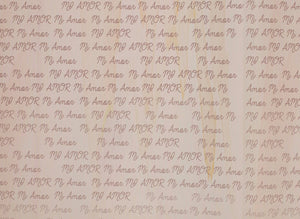 My Amor My Amor My Amor My Amor
My Amor MY AMOR My Amor MY AMOR My Amor
MY AMOR My Amor MY AMOR My Amor MY AMOR
My Amor My Amor My Amor My Amor
My Amor MY AMOR My Amor MY AMOR My Amor
MY AMOR My Amor MY AMOR My Amor MY AMOR
My Amor My Amor My Amor My Amor
My Amor MY AMOR My Amor MY AMOR My Amor
MY AMOR My Amor MY AMOR My Amor MY AMOR
My Amor My Amor My Amor My Amor
My Amor MY AMOR My Amor MY AMOR My Amor
MY AMOR My Amor MY AMOR My Amor MY AMOR
My Amor My Amor My Amor My Amor
My Amor MY AMOR My Amor MY AMOR My Amor